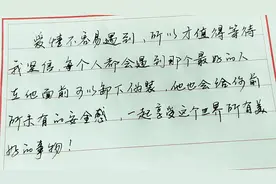 爱情不容易遇到，所以才值得等待
我坚信，每个人都会遇到那个最好的人
在他面前可以卸下伪装，他也会给你前
所未有的安全感，一起享受这个世界所有美
好的事物！